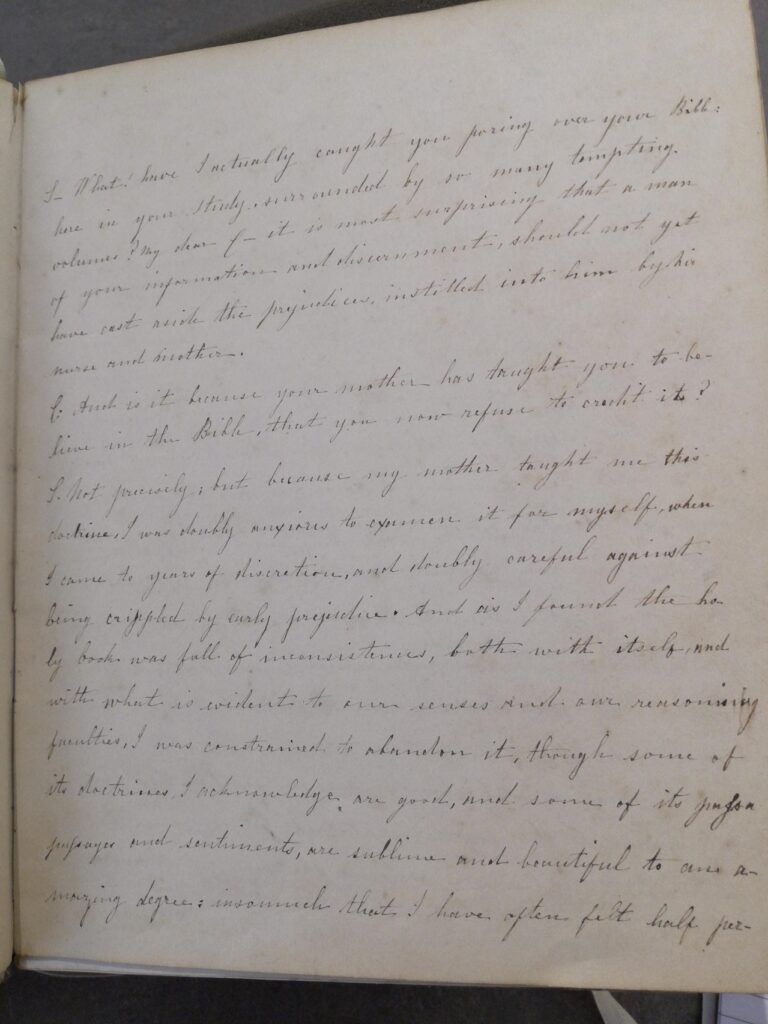 S– What! have I actually caught you poring over your Bible
here in your study, surrounded by so many tempting
volumes? My dear C– it is most surprising that a man
of your information and discernment, should not yet
have cast aside the prejudices, instilled into him by his
nurse and mother.
C. And is it because your mother has taught you to be-
lieve in the Bible, that you now refuse to credit it?
S. Not precisely; but because my mother taught me this
doctrine, I was doubly anxious to examen it for myself, when
I came to years of discretion, and doubly careful against
being crippled by early prejudice. And as I found the ho-
ly book was full of inconsistences, both with itself, and
with what is evident to our senses and our reasoning
faculties, I was constrained to abandon it, though some of
its doctrines, I acknowledge, are good, and some of its
passages and sentiments, are sublime and beautiful to an a-
mazing degree: insomuch that I have often felt half per-